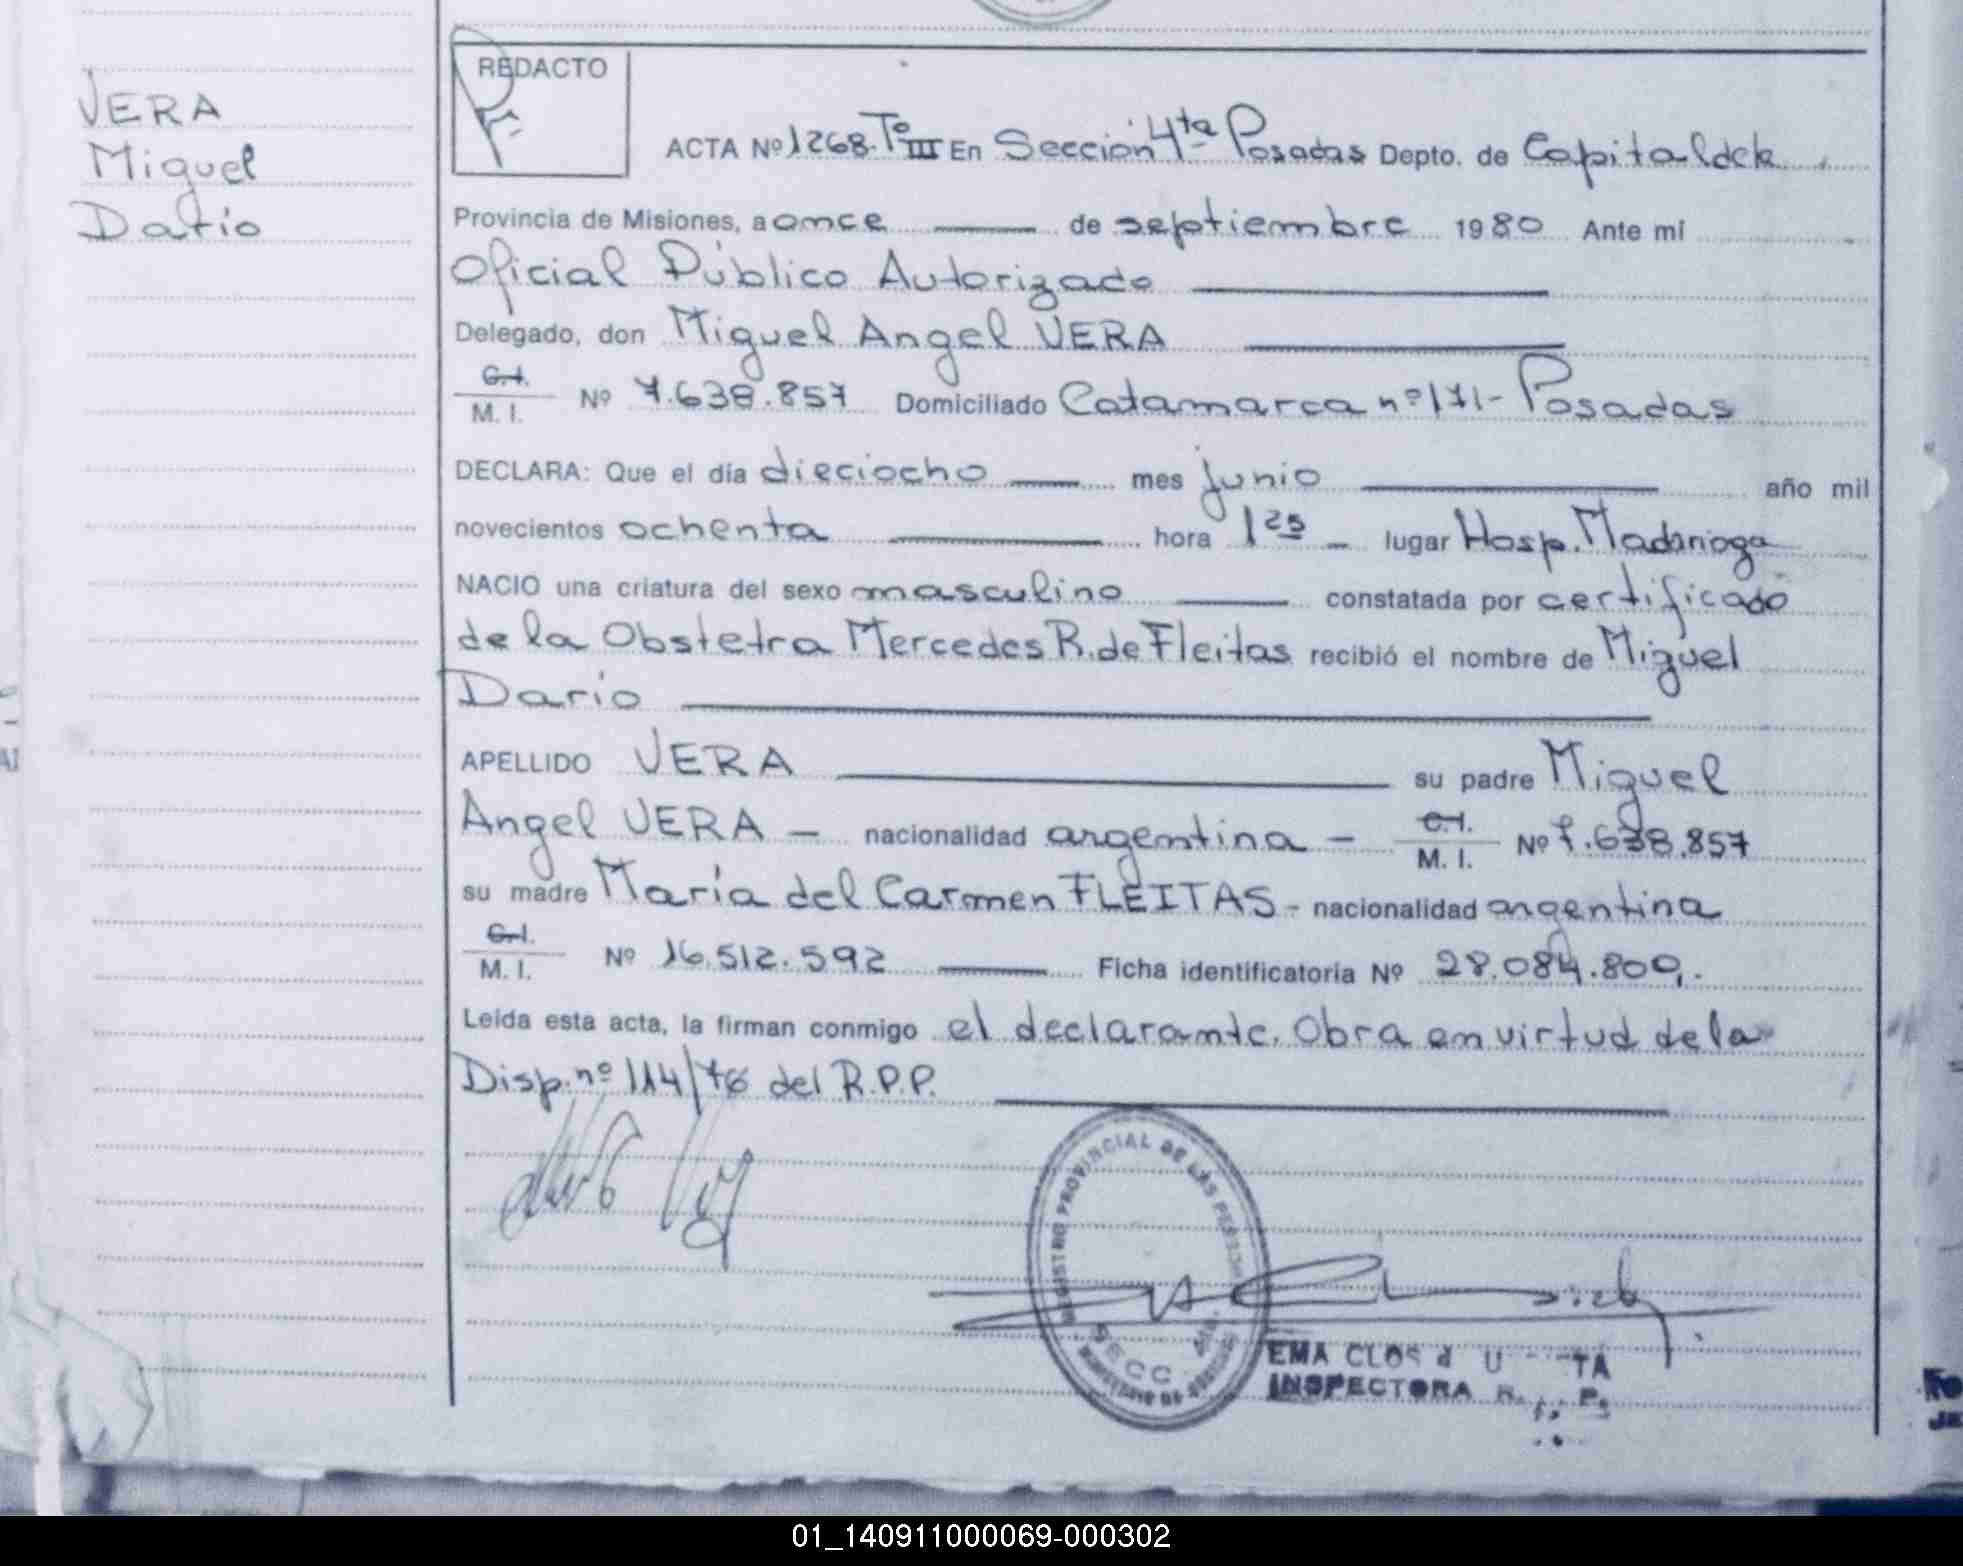 VERA
Miguel
Darío
REDACTO
ACTA Nº 1268. Tº III En Sección 4ta Posadas Depto. de Capital de la
Provincia de Misiones, a once de septiembre 1980 Ante mí
Oficial Público Autorizado
Delegado, don Miguel Angel VERA
C.I.
M. I. Nº 7.638.857 Domiciliado Catamarca nº 171- Posadas
DECLARA: Que el día dieciocho mes junio año mil
novecientos ochenta hora 1 25 - lugar Hosp. Madariaga
NACIO una criatura del sexo masculino constatada por certificado
de la Obstetra Mercedes R. de Fleitas recibió el nombre de Miguel
Darío
APELLIDO VERA su padre Miguel
Angel VERA - nacionalidad argentina - C.I.
M. I. Nº 7.638.857
su madre María del Carmen FLEITAS - nacionalidad argentina
C.I.
M. I. Nº 16.512.592 Ficha identificatoria Nº 28.084.800.
Leída esta acta, la firman conmigo el declarante. Obra en virtud de la
Disp. nº 114/76 del R.P.P.
REGISTRO PROVINCIAL DE LAS PERSONAS
SECC 4ta.
MINISTERIO DE
EMA CLOS d
INSPECTORA
01_140911000069-000302